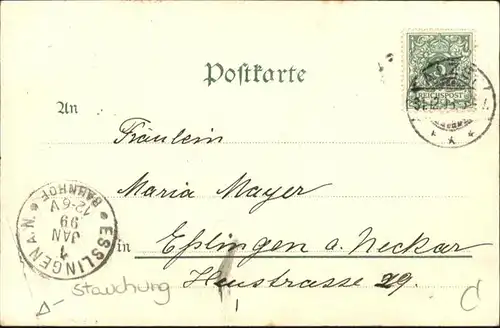 Postkarte
REICHSPOST
An
Fräulein
Maria Mayer
in Eßlingen a. Neckar
Heustrasse 29.
ESSLINGEN A.N.
1
JAN
99
12-6 V
BAHNHOF
Stauchung